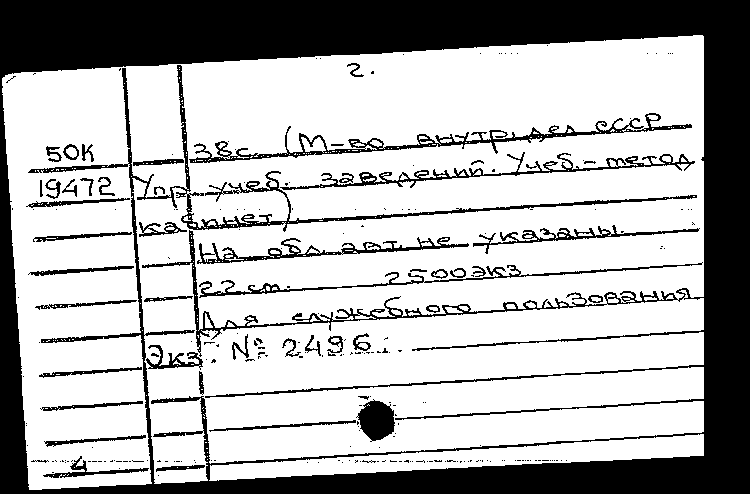 2.
50К 38с. (М-во внутр. дел СССР
19472 Упр. учеб. заведений. Учеб.-метод.
кабинет).
На обл. авт. не указаны.
22 см. 2500экз
Для служебного пользования
Экз. № 2496.
4